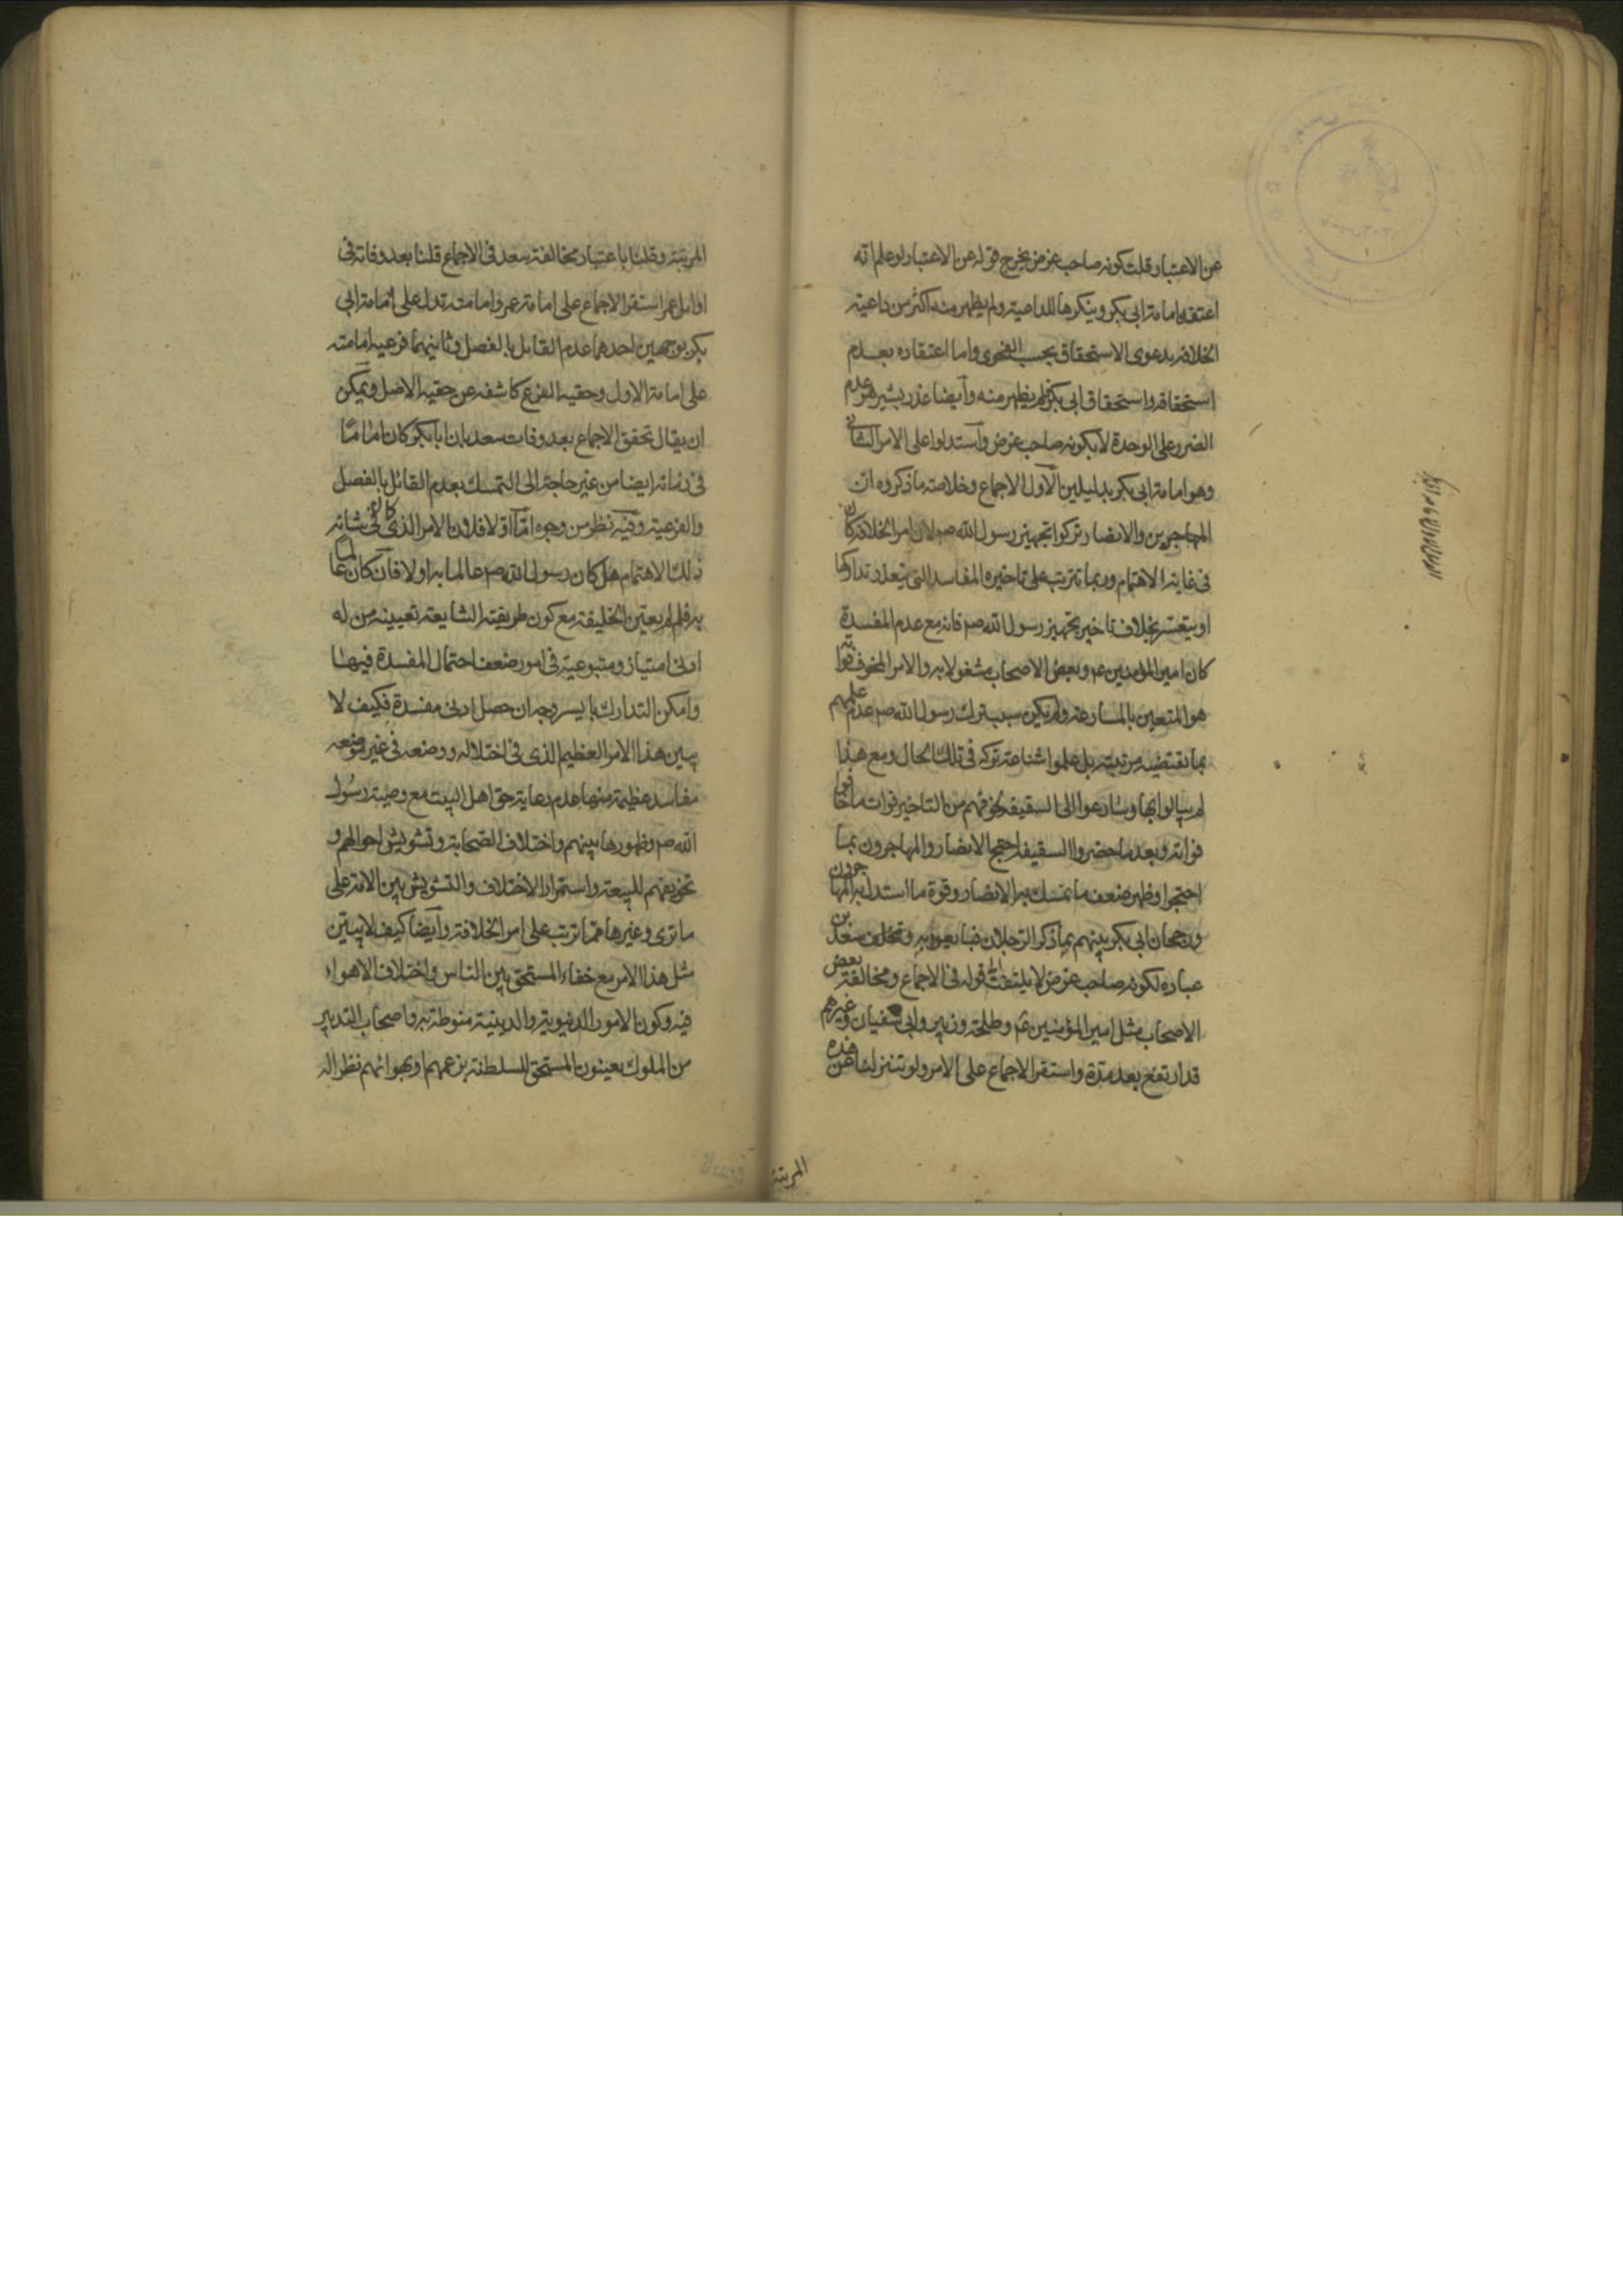 عن الاعتبار قلت كونه صاحب غرض يخرج قوله عن الاعتبار لو علم انه
اعتقد امامة ابى بكر وينكرها للداعية ولم يظهر منه اكثر من داعية
الخلافة بدعوى الاستحقاق بحسب الفحوى واما اعتقاده بعدم
استحقاقه واستحقاق ابى بكر فلم يظهر منه وأيضا عذر بشير هو عدم
الضرر على الوحدة لا بكونه صاحب غرض وأستدلوا على الامر الثانى
وهو امامة ابى بكر بدليلين الأول الاجماع وخلاصة ما ذكروه ان
المهاجرين والانصار تركوا تجهيز رسول الله صم لان امر الخلافة كان
فى غاية الاهتمام وربما تترتب على تاخيره المفاسد التى يتعذر تداركها
او يتعسر بخلاف تاخير تجهيز رسول الله صم فانه مع عدم المفسدة
كان امير المؤمنين عم وبعض الاصحاب مشغولا به والامر المخوف فواته
هو المتعين بالمسارعة ولم يكن سبب ترك رسول الله صم عدم علمهم
بما تقتضيه مرتبته بل علموا شناعة تركه فى تلك الحال ومع هذا
لم يبالوا بها وسارعوا الى السقيفة لخوفهم من التاخير فوات ما خافوا
فواته وبعد ما حضروا السقيفة احتج الانصار والمهاجرون بما
احتجوا وظهر ضعف ما تمسك به الانصار وقوة ما استدل به المهاجرون
ورجحان ابى بكر بينهم بما ذكر الرجلان فبايعوه وتخلف سعد بن
عباده لكونه صاحب غرض لا يلتفت الى قوله فى الاجماع ومخالفة بعض
الاصحاب مثل امير المؤمنين عم وطلحة وزبير وابى سفيان وغيرهم
قد ارتفع بعد مدة واستقر الاجماع على الامر ولو تنزلنا عن هذه
المرتبة
المرتبة وقلنا باعتبار مخالفة سعد فى الاجماع قلنا بعد وفاته فى
اوايل عمر استقر الاجماع على امامة عمر وامامته تدل على امامة ابى
بكر بوجهين احدهما عدم القايل بالفصل وثانيهما فرعية امامته
على امامة الاول وحقية الفرع كاشفة عن حقية الاصل ويمكن
ان يقال تحقق الاجماع بعد وفات سعد بان ابا بكر كان اماما
فى زمانه ايضا من غير حاجة الى التمسك بعدم القائل بالفصل
والفرعية وفيه نظر من وجوه امّا اولا فلان الامر الذى كان فى شانه
ذلك الاهتمام هل كان رسول الله صم عالما به اولا فان كان عالما
به فلم لم يعين الخليفة مع كون طريقته الشايعة تعيينه من له
ادنى امتياز ومتبوعية فى امور ضعف احتمال المفسدة فيها
وامكن التدارك بايسر وجه ان حصل ادنى مفسدة فكيف لا
يبين هذا الامر العظيم الذى فى اختلاله ووضعه فى غير موضعه
مفاسد عظيمة منها عدم رعاية حق اهل البيت مع وصية رسول
الله صم وظهورها بينهم واختلاف الصحابة وتشويش احوالهم و
تخويفهم للبيعة واستمرار الاختلاف والتشويش بين الامة على
ما ترى وغيرها مما ترتب على امر الخلافة وأيضا كيف لا يبين
مثل هذا الامر مع خفاء المستحق بين الناس واختلاف الاهواء
فيه وكون الامور الدنيوية والدينية منوطة به واصحاب التدبير
من الملوك يعينون المستحق للسلطنة بزعمهم او بهوائهم نظرا الى